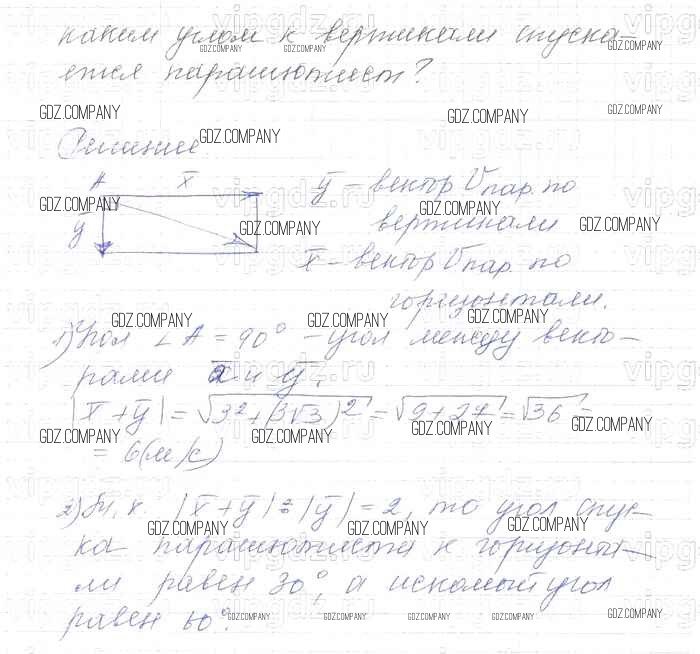 каким углом к вертикали спуска-
ется парашютист?
Решение
A x̅ y̅ – вектор Vпар. по
y̅ вертикали
x̅ – вектор Vпар. по
горизонтали.
1) Угол ∠A = 90° – угол между векто-
рами x̅ и y̅.
|x̅ + y̅| = √3² + (3√3)² = √9 + 27 = √36 =
= 6 (м/с)
2) Т. к. |x̅ + y̅| : |y̅| = 2, то угол спус-
ка парашютиста к горизонта-
ли равен 30°, а искомый угол
равен 60°.
GDZ.COMPANY
vipgdz.ru